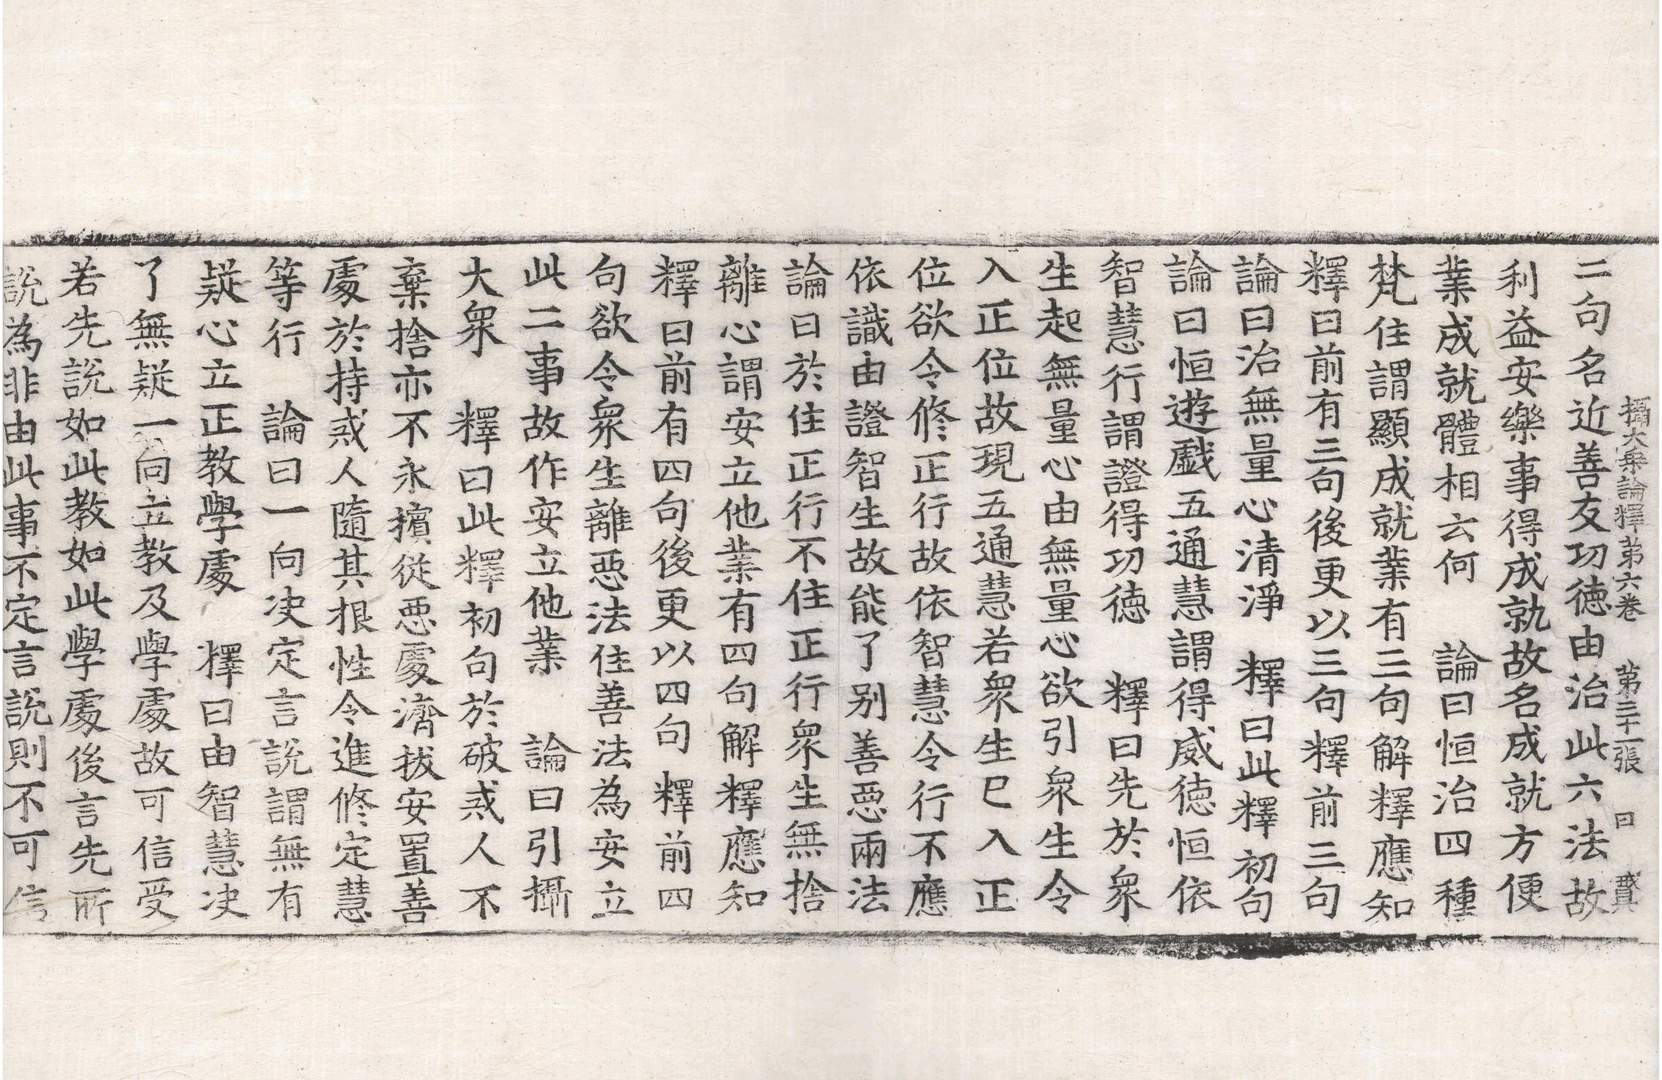 攝大乗論釋第六卷 第三十一張 賢
二句名近善友功徳由治此六法故
利益安樂事得成就故名成就方便
業成就體相云何 論曰恒治四種
梵住謂顯成就業有三句解釋應知
釋曰前有三句後更以三句釋前三句
論曰治無量心清淨 釋曰此釋初句
論曰恒遊戲五通慧謂得威徳恒依
智慧行謂證得功徳 釋曰先於衆
生起無量心由無量心欲引衆生令
入正位故現五通慧若衆生巳入正
位欲令修正行故依智慧令行不應
依識由證智生故能了别善惡兩法
論曰於住正行不住正行衆生無捨
離心謂安立他業有四句解釋應知
釋曰前有四句後更以四句釋前四
句欲令衆生離惡法住善法為安立
此二事故作安立他業 論曰引攝
大衆 釋曰此釋初句於破戒人不
棄捨亦不永擯從惡處濟拔安置善
處於持戒人隨其根性令進修定慧
等行 論曰一向决定言說謂無有
疑心立正教學處 釋曰由智慧决
了無疑一向立教及學處故可信受
若先說如此教如此學處後言先所
說為非由此事不定言說則不可信